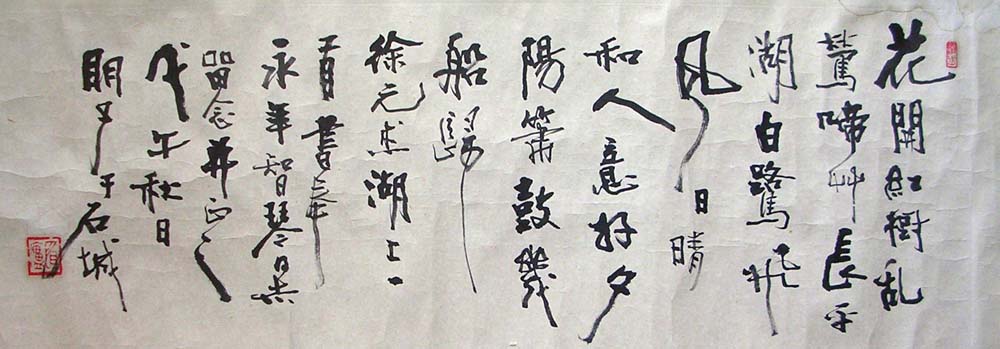 花開紅樹乱
鶯啼艸長平
湖白鷺飛
風日晴
和人意好夕
陽簫鼓幾
船歸
徐元杰湖上一
首書奉
永年智琴
留念并正之
戊午秋日
于石城